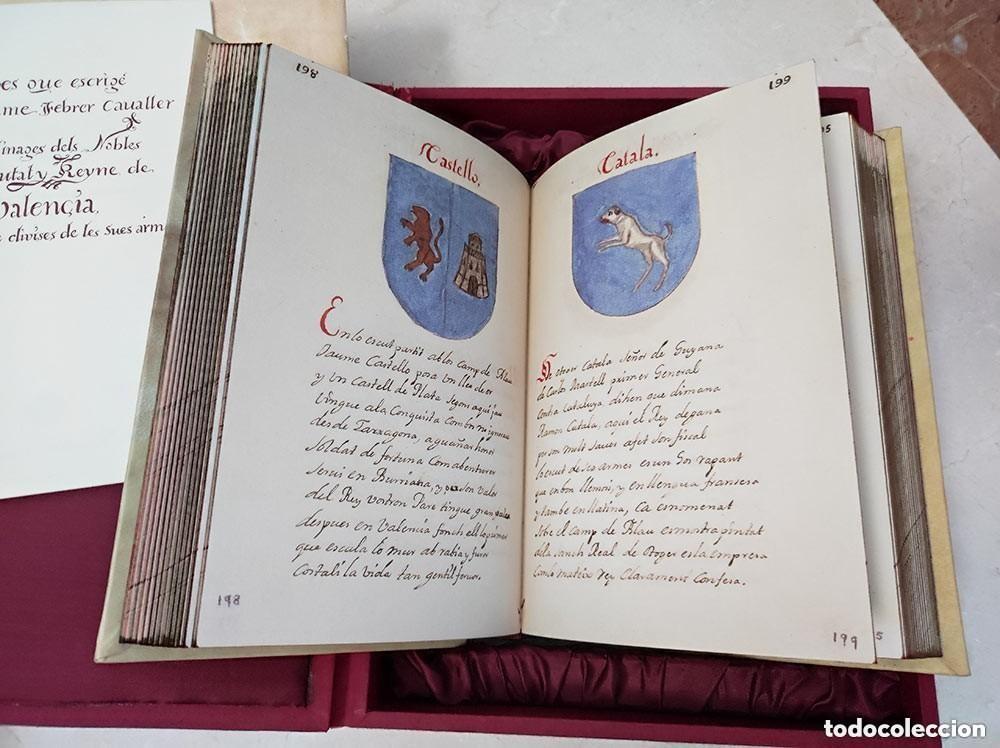 es que escrigé
ume Febrer Cavaller
inages dels Nobles
utat y Reyne de
Valençia.
divises de les sues arm
198
Castello.
En lo escut partit ab los camp de Blau
Jaume Castello posa un lleo de or
y un Castell de Plata segons aqui jau
vingue ala Conquista
desde Tarragona, a guañar honor
Soldat de fortuna Com abenturer
servi en Burriana, y per son valor
del Rey vostron Pare tingue gran
despues en Valencia fonch ell lo primer
que escala lo mur ab rabia y furor
Costali la vida tan gentil fervor.
198
199
Catala.
De otrer Catala Señor de Guyana
de Carlos Martell primer General
Contra Cataluya dihen que dimana
Ramon Catala, aqui el Rey depana
per son molt saver afet son fiscal
lo escut de ses armes es un Gos rapant
que en bon Llemosi, y en llengua fransesa
y tambe en llatina, Ca es nomenat
sobre el camp de Blau es mostra pintat
de la Sanch Real de Proper es la empresa
Com lo mateix rey Clarament Confesa.
199
5
todocoleccion